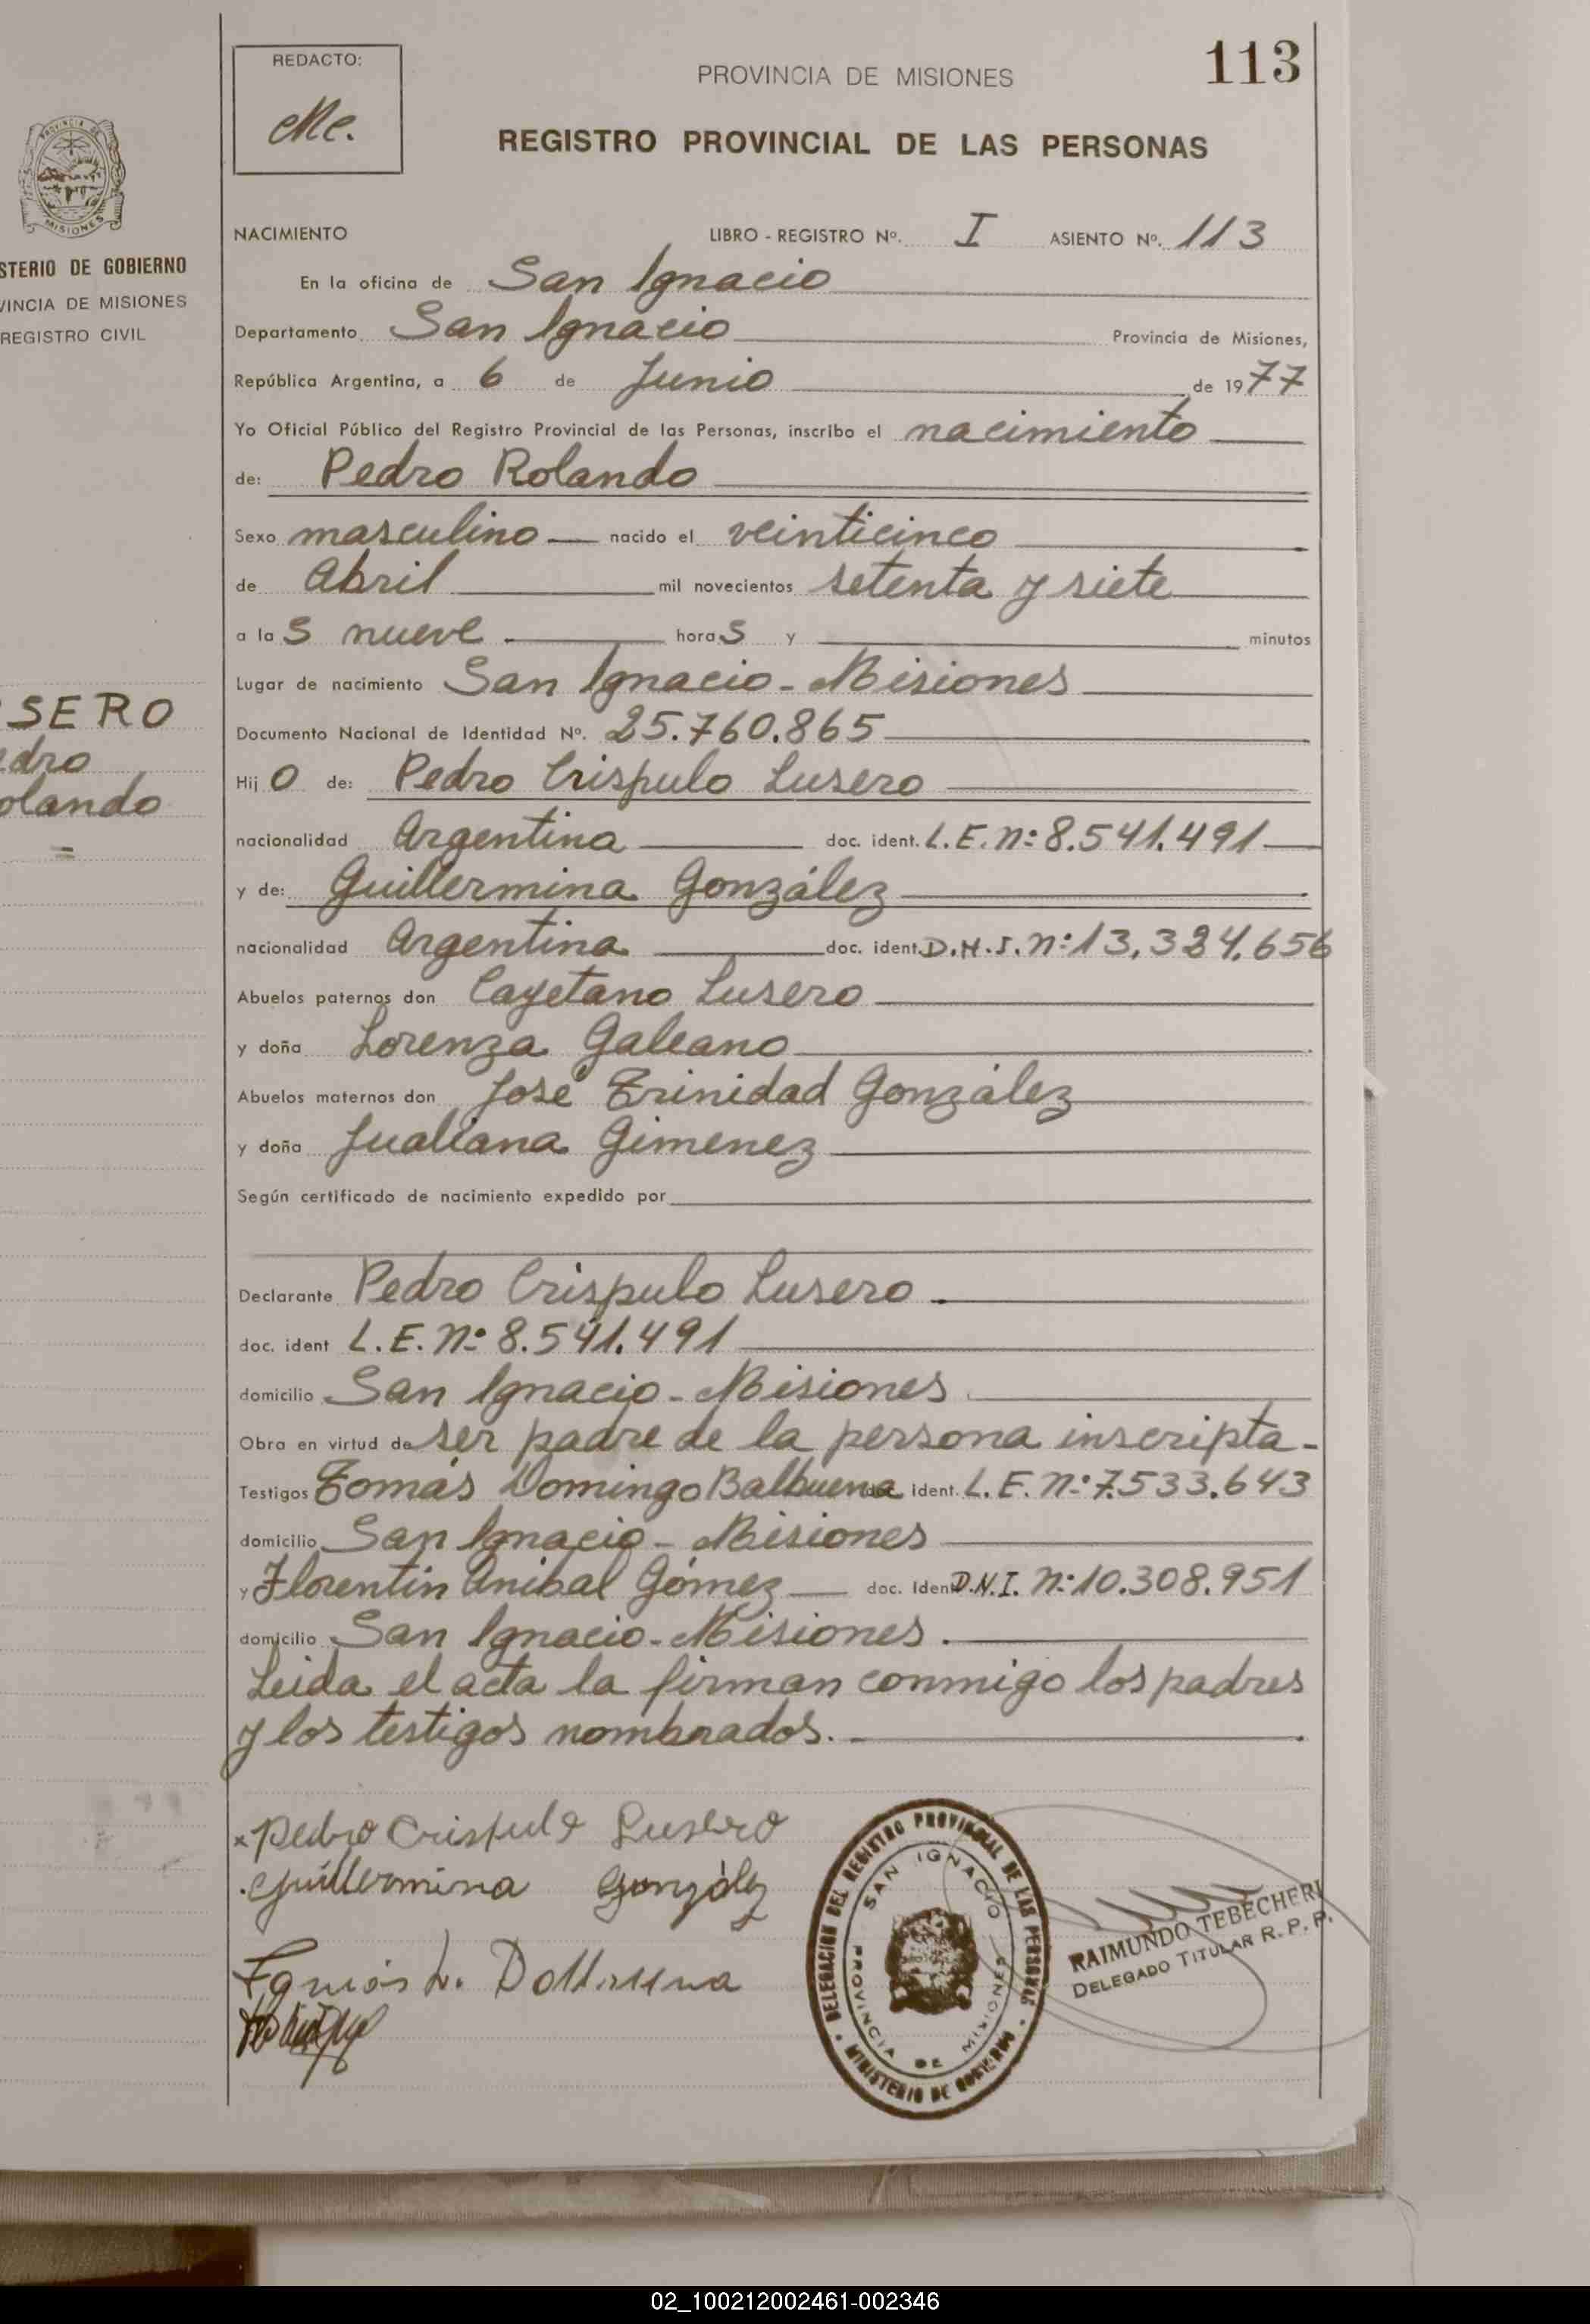 REDACTO:
Me.
PROVINCIA DE MISIONES
113
REGISTRO PROVINCIAL DE LAS PERSONAS
PROVINCIA DE
MISIONES
STERIO DE GOBIERNO
VINCIA DE MISIONES
REGISTRO CIVIL
SERO
dro
olando
=
NACIMIENTO LIBRO - REGISTRO Nº. I ASIENTO Nº. 113
En la oficina de San Ignacio
Departamento San Ignacio Provincia de Misiones,
República Argentina, a 6 de Junio de 1977
Yo Oficial Público del Registro Provincial de las Personas, inscribo el nacimiento
de: Pedro Rolando
Sexo masculino — nacido el veinticinco
de Abril mil novecientos setenta y siete
a las nueve horas y minutos
Lugar de nacimiento San Ignacio - Misiones
Documento Nacional de Identidad Nº. 25.760.865
Hijo de: Pedro Crispulo Lusero
nacionalidad Argentina doc. ident. L.E. nº: 8.541.491
y de: Guillermina González
nacionalidad Argentina doc. ident. D.N.I. nº: 13.384.656
Abuelos paternos don Cayetano Lusero
y doña Lorenza Galeano
Abuelos maternos don José Trinidad González
y doña Jualiana Gimenez
Según certificado de nacimiento expedido por
Declarante Pedro Crispulo Lusero.
doc. ident L.E. Nº 8.541.491
domicilio San Ignacio - Misiones
Obra en virtud de ser padre de la persona inscripta -
Testigos Tomás Domingo Balbuena ident. L.E. nº: 7.533.643
domicilio San Ignacio - Misiones
y Florentin Anibal Gómez doc. Iden D.N.I. nº: 10.308.951
domicilio San Ignacio - Misiones.
Leida el acta la firman conmigo los padres
y los testigos nombrados. -
x Pedro Crispulo Lusero
Guillermina González
DELEGACION DEL REGISTRO PROVINCIAL DE LAS PERSONAS
MINISTERIO DE GOBIERNO
SAN IGNACIO
PROVINCIA DE MISIONES
RAIMUNDO TEBECHERI
DELEGADO TITULAR R. P. P.
02_100212002461-002346